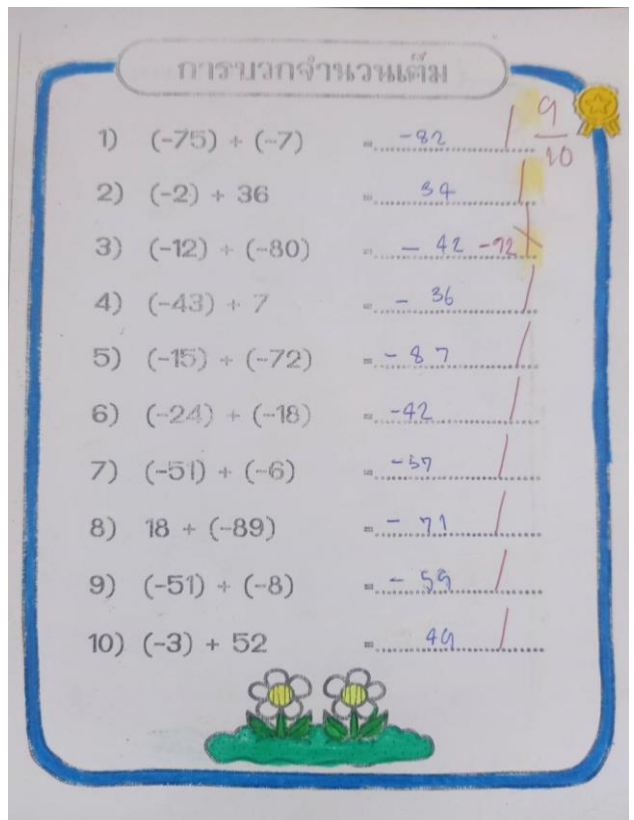 การบวกจำนวนเต็ม
9/10
1) (-75) + (-7) = -82 /
2) (-2) + 36 = 34 /
3) (-12) + (-80) = - 42 -92
4) (-43) + 7 = - 36 /
5) (-15) + (-72) = - 87 /
6) (-24) + (-18) = -42 /
7) (-51) + (-6) = -57 /
8) 18 + (-89) = - 71 /
9) (-51) + (-8) = - 59 /
10) (-3) + 52 = 49 /